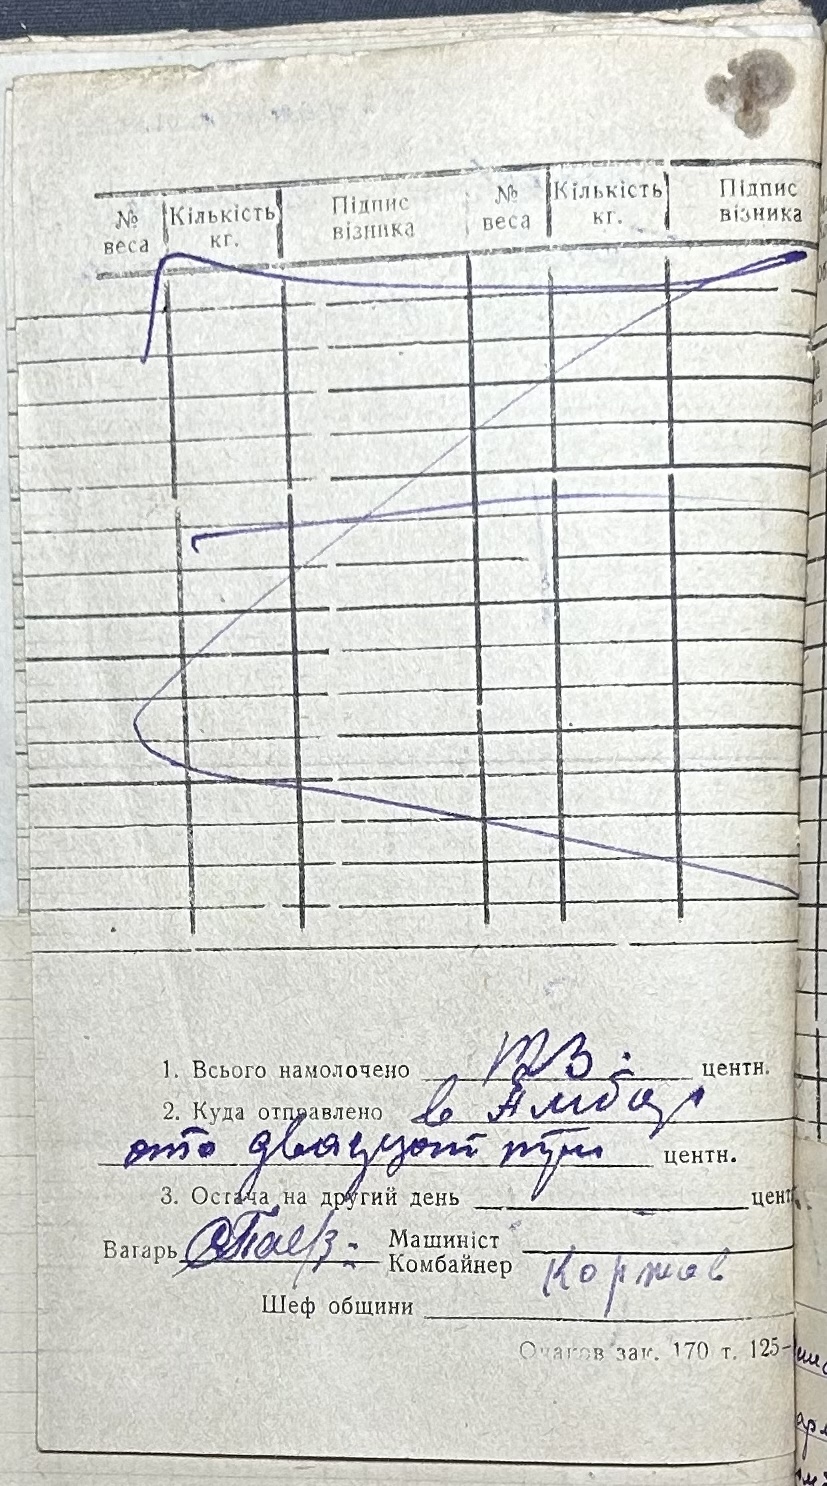 № веса Кількість кг. Підпис візника № веса Кількість кг. Підпис візника
1. Всього намолочено центн.
2. Куда отправлено в Амбар
сто двадцать центн.
3. Остача на другий день цент
Вагарь Машиніст
Комбайнер Коржов
Шеф общини
Очаков зак. 170 т. 125-